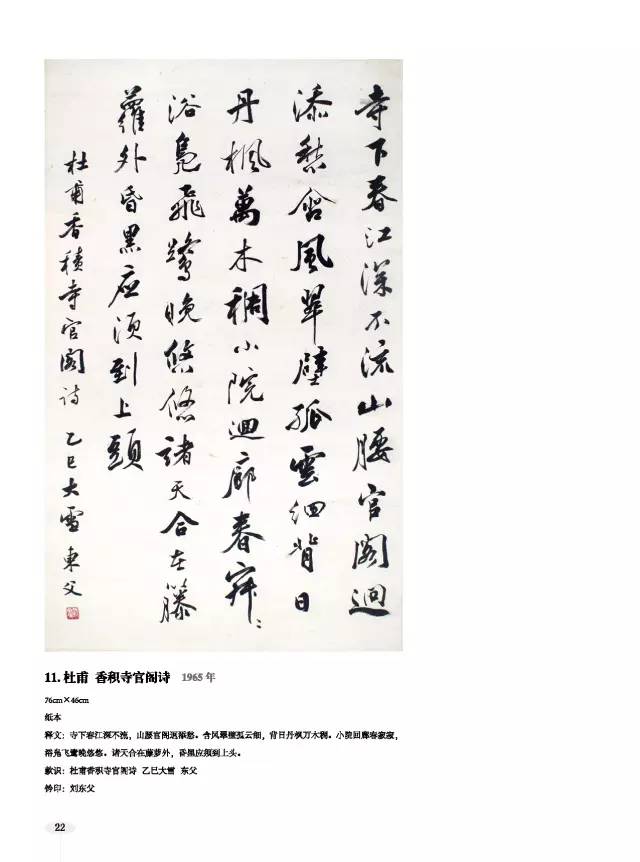 寺下春江深不流山腰官閣迥
添愁含風翠壁孤雲細背日
丹楓萬木稠小院迴廊春寂〻
浴鳧飛鷺晚悠悠諸天合在藤
蘿外昏黑应須到上頭
杜甫香積寺官閣诗 乙巳大雪 東父
11. 杜甫 香积寺官阁诗 1965 年
76cm×46cm
纸本
释文：寺下春江深不流，山腰官阁迥添愁。含风翠壁孤云细，背日丹枫万木稠。小院回廊春寂寂，
浴凫飞鹭晚悠悠。诸天合在藤萝外，昏黑应须到上头。
款识：杜甫香积寺官阁诗 乙巳大雪 东父
钤印：刘东父
22